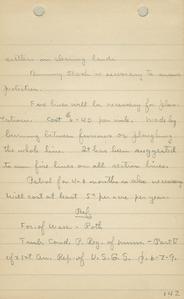 settlers in clearing lands.
Burning slash is necessary to ensure
protection.
Fire lines will be necessary for plan-
tations. Cost $6-40 per mile. Made by
burning between furrows or ploughing
the whole line. It has been suggested
to run fire lines on all section lines.
Patrol for 4-6 months is also necessary
Will cost at least 5¢ per acre per year.
Ref
For. of Minn. - Roth
Timb. Cond. P. Reg. of Minn. - Part V
of 21st. Ann. Rep. of U.S.G.S. p. 6-7-9.
142